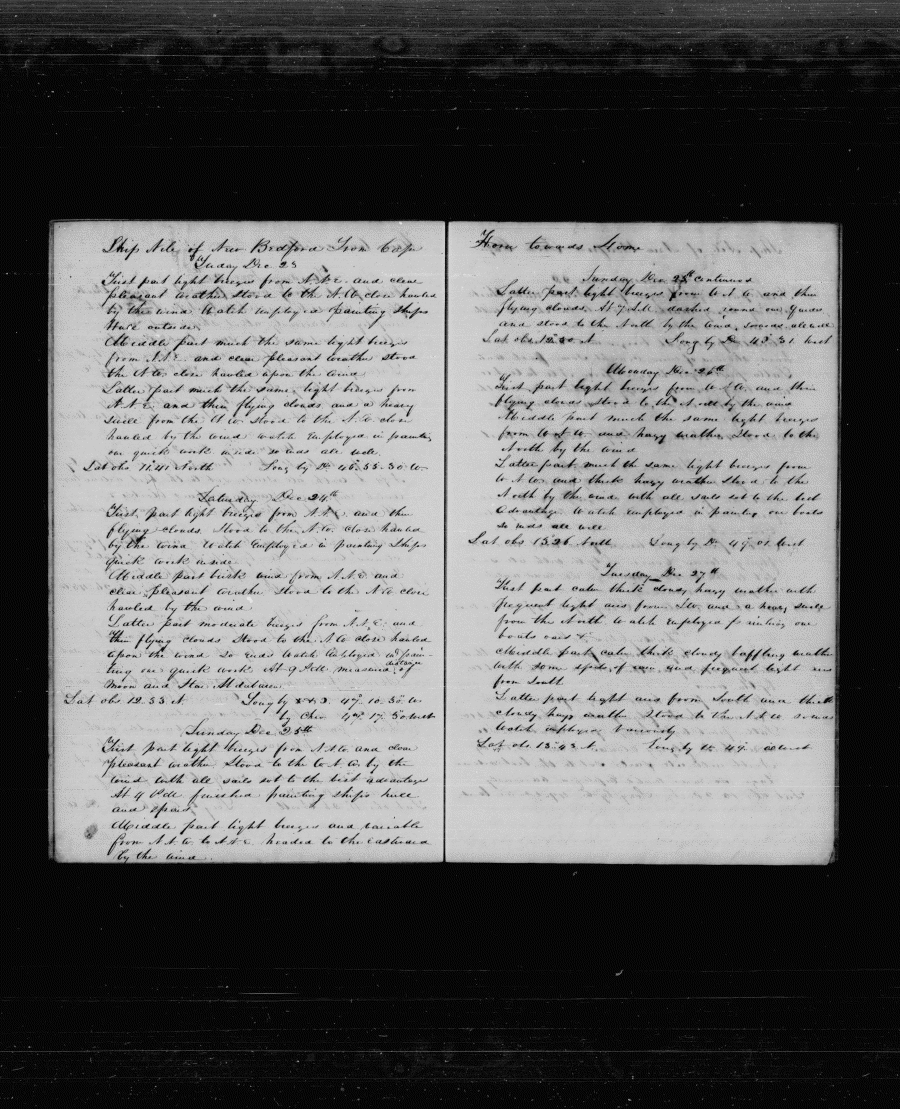 Ship Nile of New Bedford From Cape
Friday Dec 23
First part light breezes from N.N.E. and clear
pleasant weather Stood to the N.W. close hauled
by the wind Watch Employed painting Ships
Waist outside
Middle part much the same light breezes
from N.N.E. and clear pleasant weather stood
the N.W. close hauled upon the wind
Latter part much the same, light breezes from
N.N.E. and thin flying clouds and a heavy
swell from the N.W. Stood to the N.W. close
hauled by the wind watch Employed in painting
our quick work inside so ends all well
Lat obs 11.41 North Long by Dr 46.55.30 W.
Saturday Dec 24th
First part light breezes from N.N.E. and thin
flying clouds. Stood to the N.W. close hauled
by the wind Watch Employed in painting Ships
quick work inside
Middle part brisk wind from N.N.E. and
clear pleasant weather Stood to the N.W. close
hauled by the wind
Latter part moderate breezes from N.N.E. and
thin flying clouds Stood to the N.W. close hauled
upon the wind so Ends Watch Employed in pain-
ting our quick work At 9 A.M. measured distance of
Moon and Star Aldabaran
Lat obs 12.33 N. Long by 47.10.30 W.
by Chro 47.17.30 West
Sunday Dec 25th
First part light breezes from N.N.W. and clear
pleasant weather Stood to the W.N.W. by the
wind with all sails set to the best advantage
At 4 P.M. finished painting ships hull
and spars
Middle part light breezes and variable
from N.N.W. to N.N.E. headed to the Eastward
by the wind.
Horn towards Home
Sunday Dec 25th Continued
Latter part light breezes from W.N.W. and thin
flying clouds. At 7 A.M. round our yards
and stood to the North by the wind, so ends all well
Lat obs 12.50 N. Long by Dr 45.31 West
Monday Dec 26th
First part light breezes from W.N.W. and thin
flying clouds Stood to the North by the wind
Middle part much the same light breezes
from W.N.W. and hazy weather Stood to the
North by the wind
Latter part much the same light breezes from
W.N.W. and thick hazy weather Stood to the
North by the wind with all sails set to the best
Advantage. Watch Employed in painting our boats
so ends all well
Lat obs 13.26 North Long by Dr 47.01 West
Tuesday Dec 27th
First part calm thick cloudy hazy weather with
frequent light airs from and a heavy swell
from the North Watch Employed painting our
boats oars &
Middle part calm thick cloudy baffling weather
with some spits of rain and frequent light airs
from South
Latter part light airs from South and thick
cloudy hazy weather Stood to the N.N.W. so ends
Watch employed variously
Lat obs 13.43 N. Long by Dr 47 West